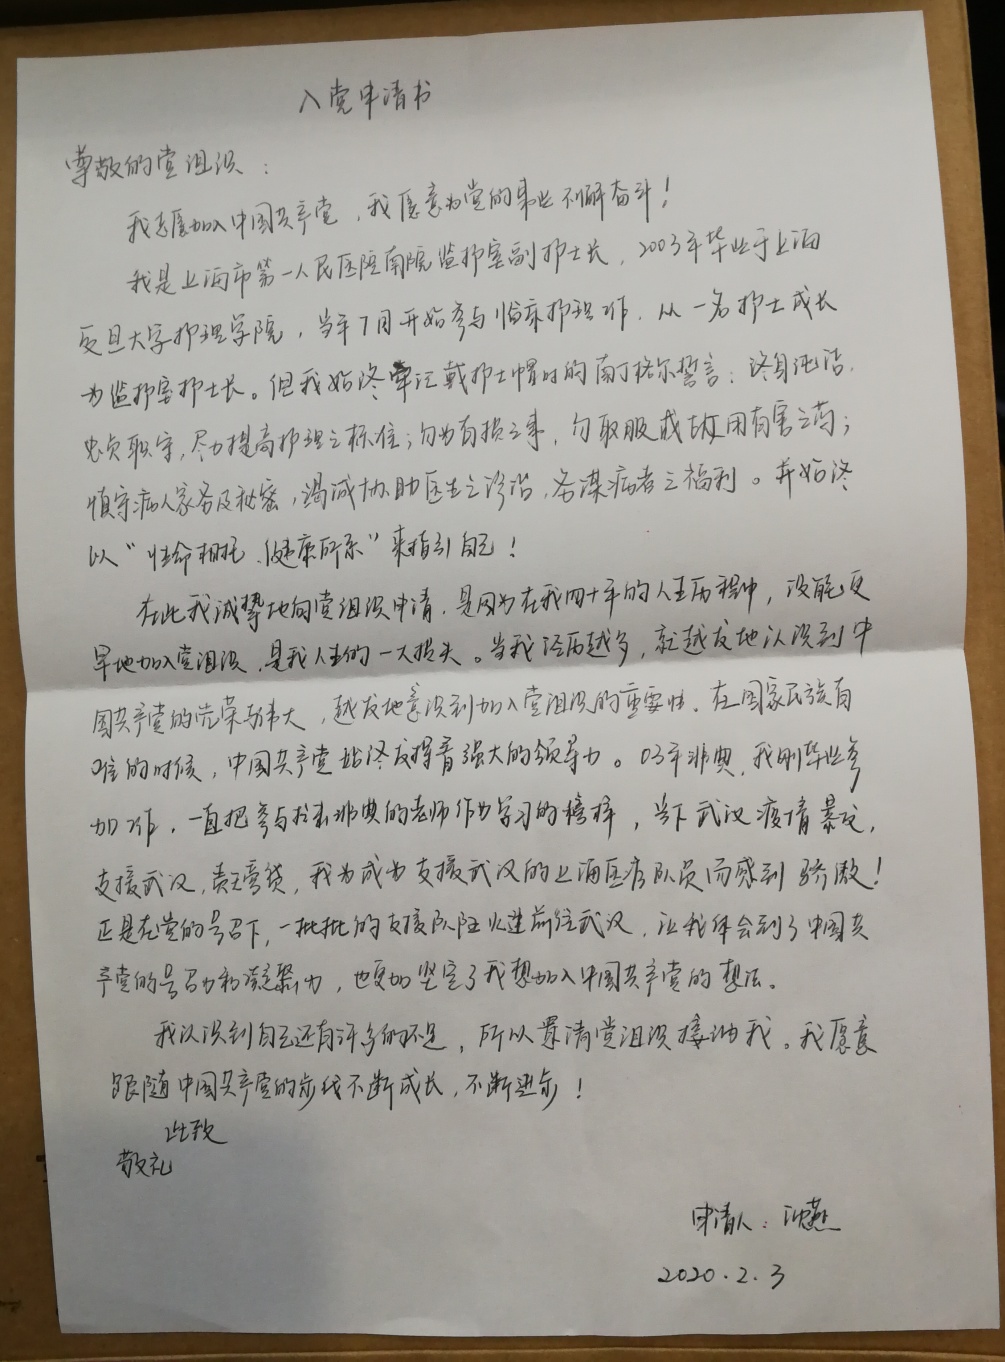 入党申请书
尊敬的党组织：
我志愿加入中国共产党，我愿意为党的事业不懈奋斗！
我是上海市第一人民医院南院监护室副护士长，2003年毕业于上海
复旦大学护理学院，当年7月开始参与临床护理工作，从一名护士成长
为监护室护士长。但我始终牢记戴护士帽时的南丁格尔誓言：终身纯洁，
忠贞职守，尽力提高护理之标准；勿为有损之事，勿取服或故用有害之药；
慎守病人家务及秘密，竭诚协助医生之诊治，务谋病者之福利。并始终
以“性命相托、健康所系”来指引自己！
在此我诚挚地向党组织申请，是因为在我四十年的人生历程中，没能更
早地加入党组织，是我人生的一大损失。当我经历越多，就越发地认识到中
国共产党的光荣与伟大，越发地意识到加入党组织的重要性。在国家民族有
难的时候，中国共产党始终发挥着强大的领导力。03年非典，我刚毕业参
加工作，一直把参与抗击非典的老师作为学习的榜样，当下武汉疫情暴发，
支援武汉，责无旁贷，我为成为支援武汉的上海医疗队员而感到骄傲！
正是在党的号召下，一批批的支援队陆火速前往武汉，让我体会到了中国共
产党的号召力和凝聚力，也更加坚定了我想加入中国共产党的想法。
我认识到自己还有许多的不足，所以恳请党组织接纳我。我愿意
跟随中国共产党的步伐不断成长，不断进步！
此致
敬礼
申请人：沈燕
2020.2.3